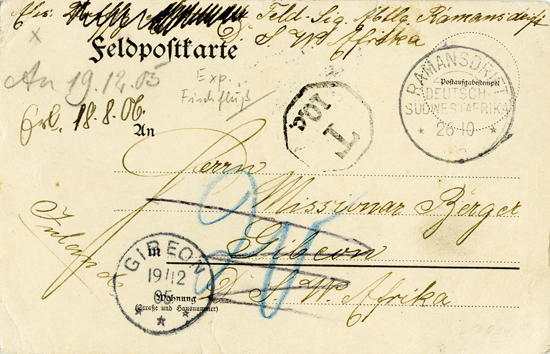 Feld-Sig. Abtlg. Ramansdrift
D. S. W. Afrika
Feldpostkarte
An 19.12.05
Exp.
Erb. 18.8.06.
An
T
RAMANSDRIFT
DEUTSCH-
SÜDWESTAFRIKA
* 26 10 *
Postaufgabestempel
Herrn
Missionar Berger
Gibeon
in
D. S. W. Afrika
GIBEON
19/12
05
* * *
Wohnung
(Straße und Hausnummer)